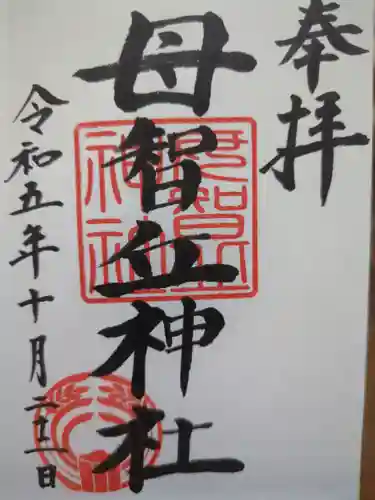 奉拝
母智丘神社
母智丘
神社
令和五年十月二十一日